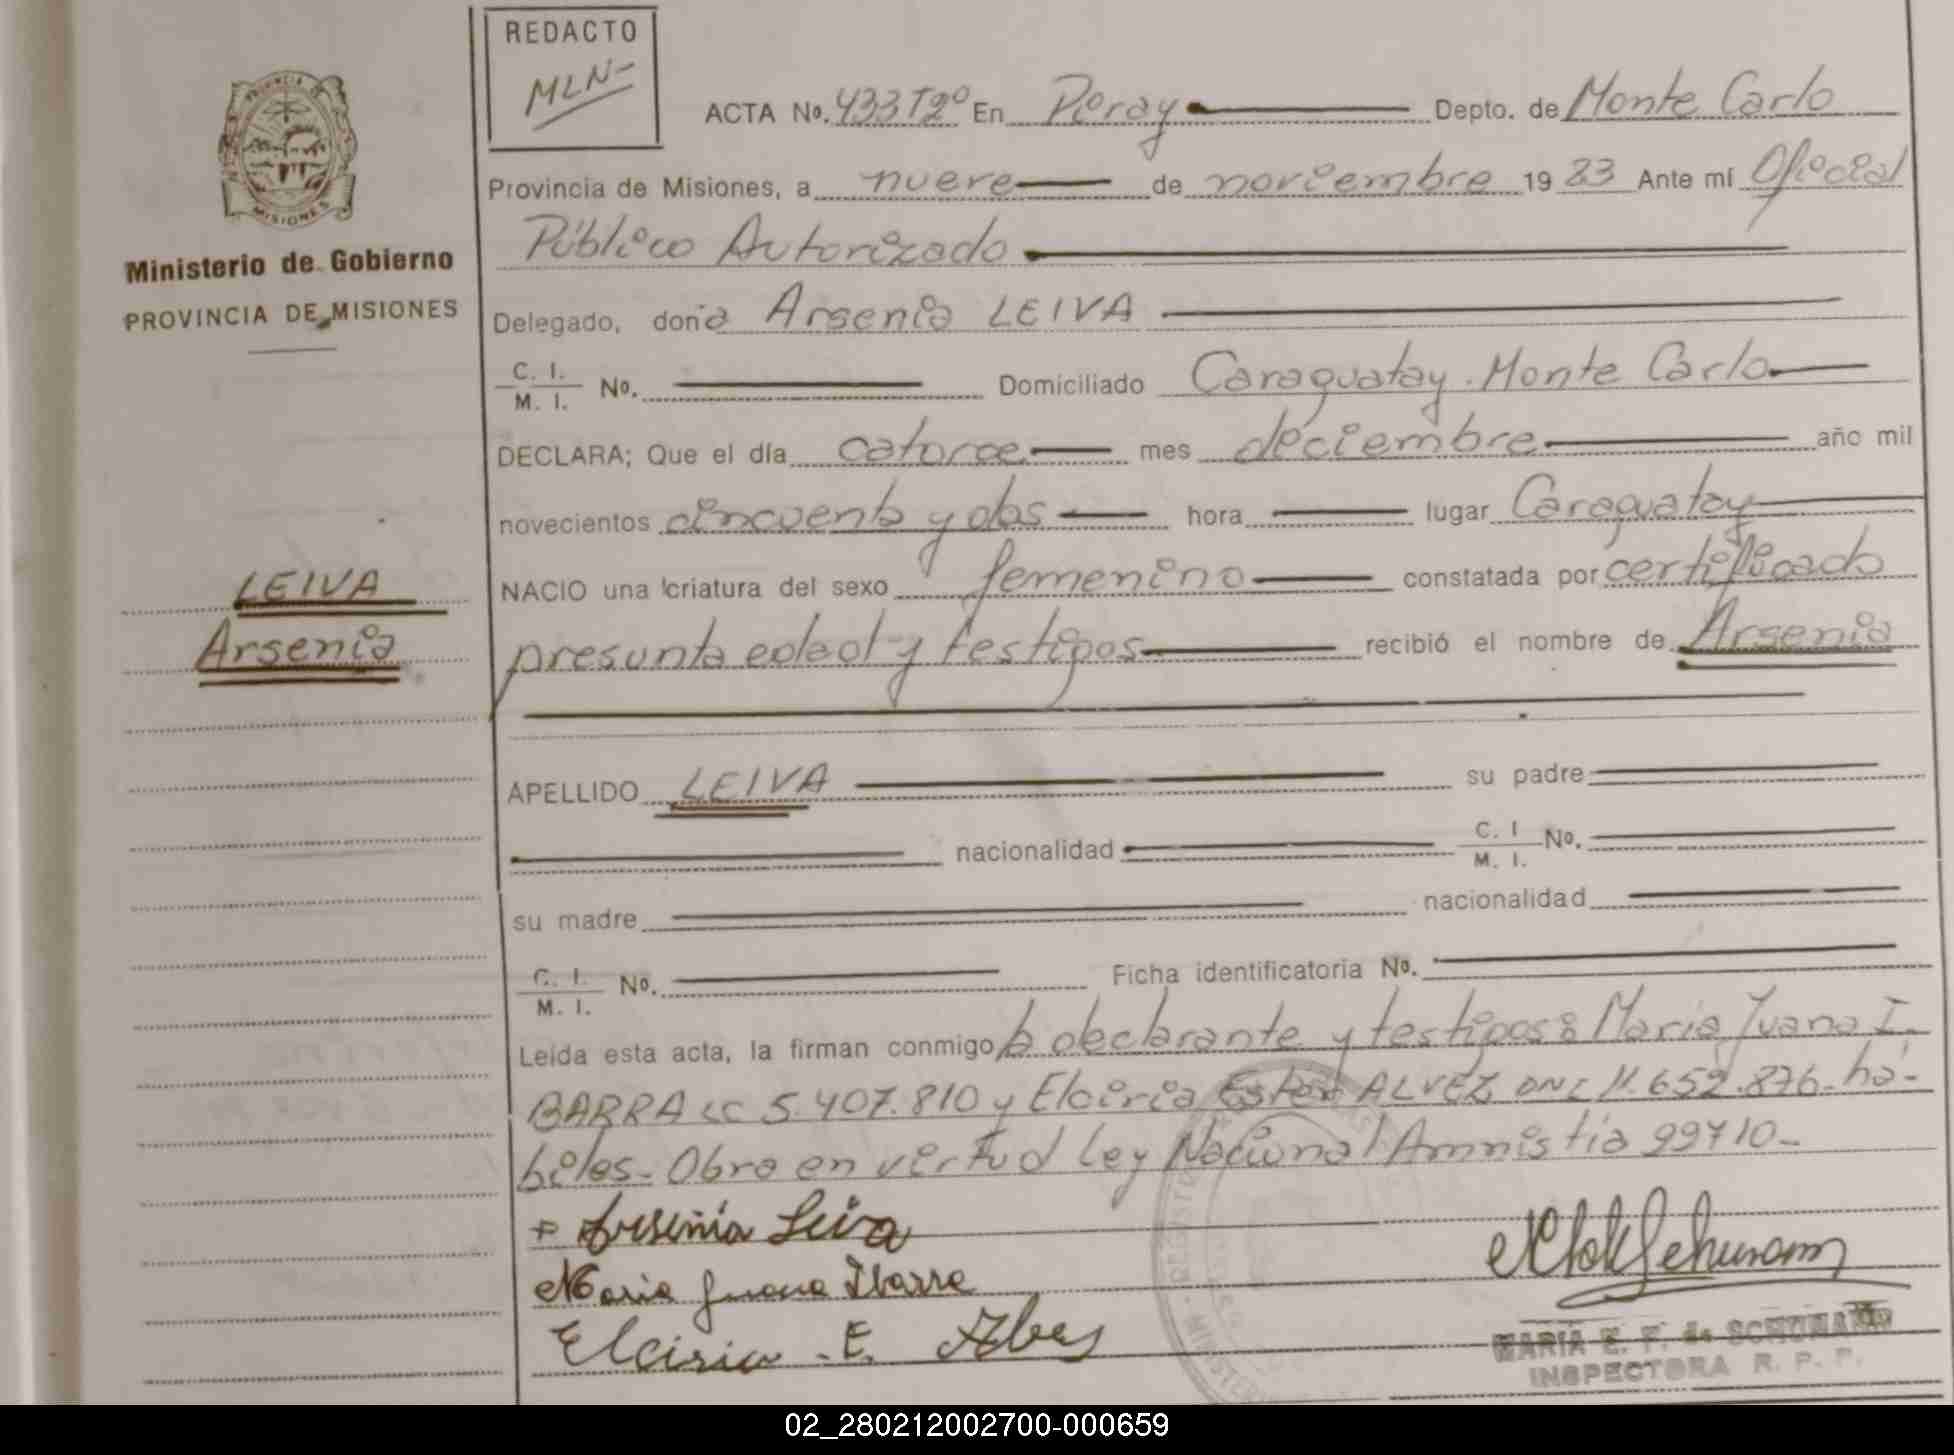 REDACTO
MLN-
ACTA No. 433 T2º En Peray Depto. de Monte Carlo
Provincia de Misiones, a nueve de noviembre 1983 Ante mí Oficial
Público Autorizado
Ministerio de Gobierno
PROVINCIA DE MISIONES
MISIONES
Delegado, doña Arsenia LEIVA
C. I. M. I. No. Domiciliado Caraguatay. Monte Carlo
DECLARA; Que el día catorce mes deciembre año mil
novecientos cincuenta y dos hora lugar Caraguatay
LEIVA
Arsenia
NACIO una criatura del sexo femenino constatada por certificado
presunta edad y testigos recibió el nombre de Arsenia
APELLIDO LEIVA su padre
nacionalidad C. I. M. I. No.
su madre nacionalidad
C. I. M. I. No. Ficha identificatoria No.
Leída esta acta, la firman conmigo la declarante y testigos: María Juana I.
BARRA LC 5.407.810 y Elciria Ester ALVEZ DNI 11.652.876- há-
biles- Obra en virtud Ley Nacional Amnistia 22410-
+ Arsenia Leiva
Maria Juana Ibarra
Elciria E. Alves
MARIA E. F. de SCHUMANN
INSPECTORA R. P. P.
02_280212002700-000659